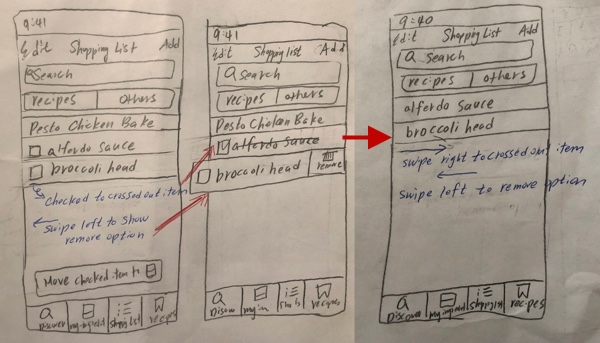 9:41
Edit Shopping List Add
Search
recipes others
Pesto Chicken Bake
alferdo sauce
broccoli head
Checked to crossed out item
← Swipe left to show
remove option
Move checked item to
Discover my ingredient shopping list recipes
9:41
Edit Shopping list Add
Search
recipes others
Pesto Chicken Bake
alferdo sauce
broccoli head remove
Discover my in recipes
9:40
Edit Shopping List Add
Search
recipes others
alferdo sauce
broccoli head
swipe right to crossed out item
swipe left to remove option
Discover shopping list recipes